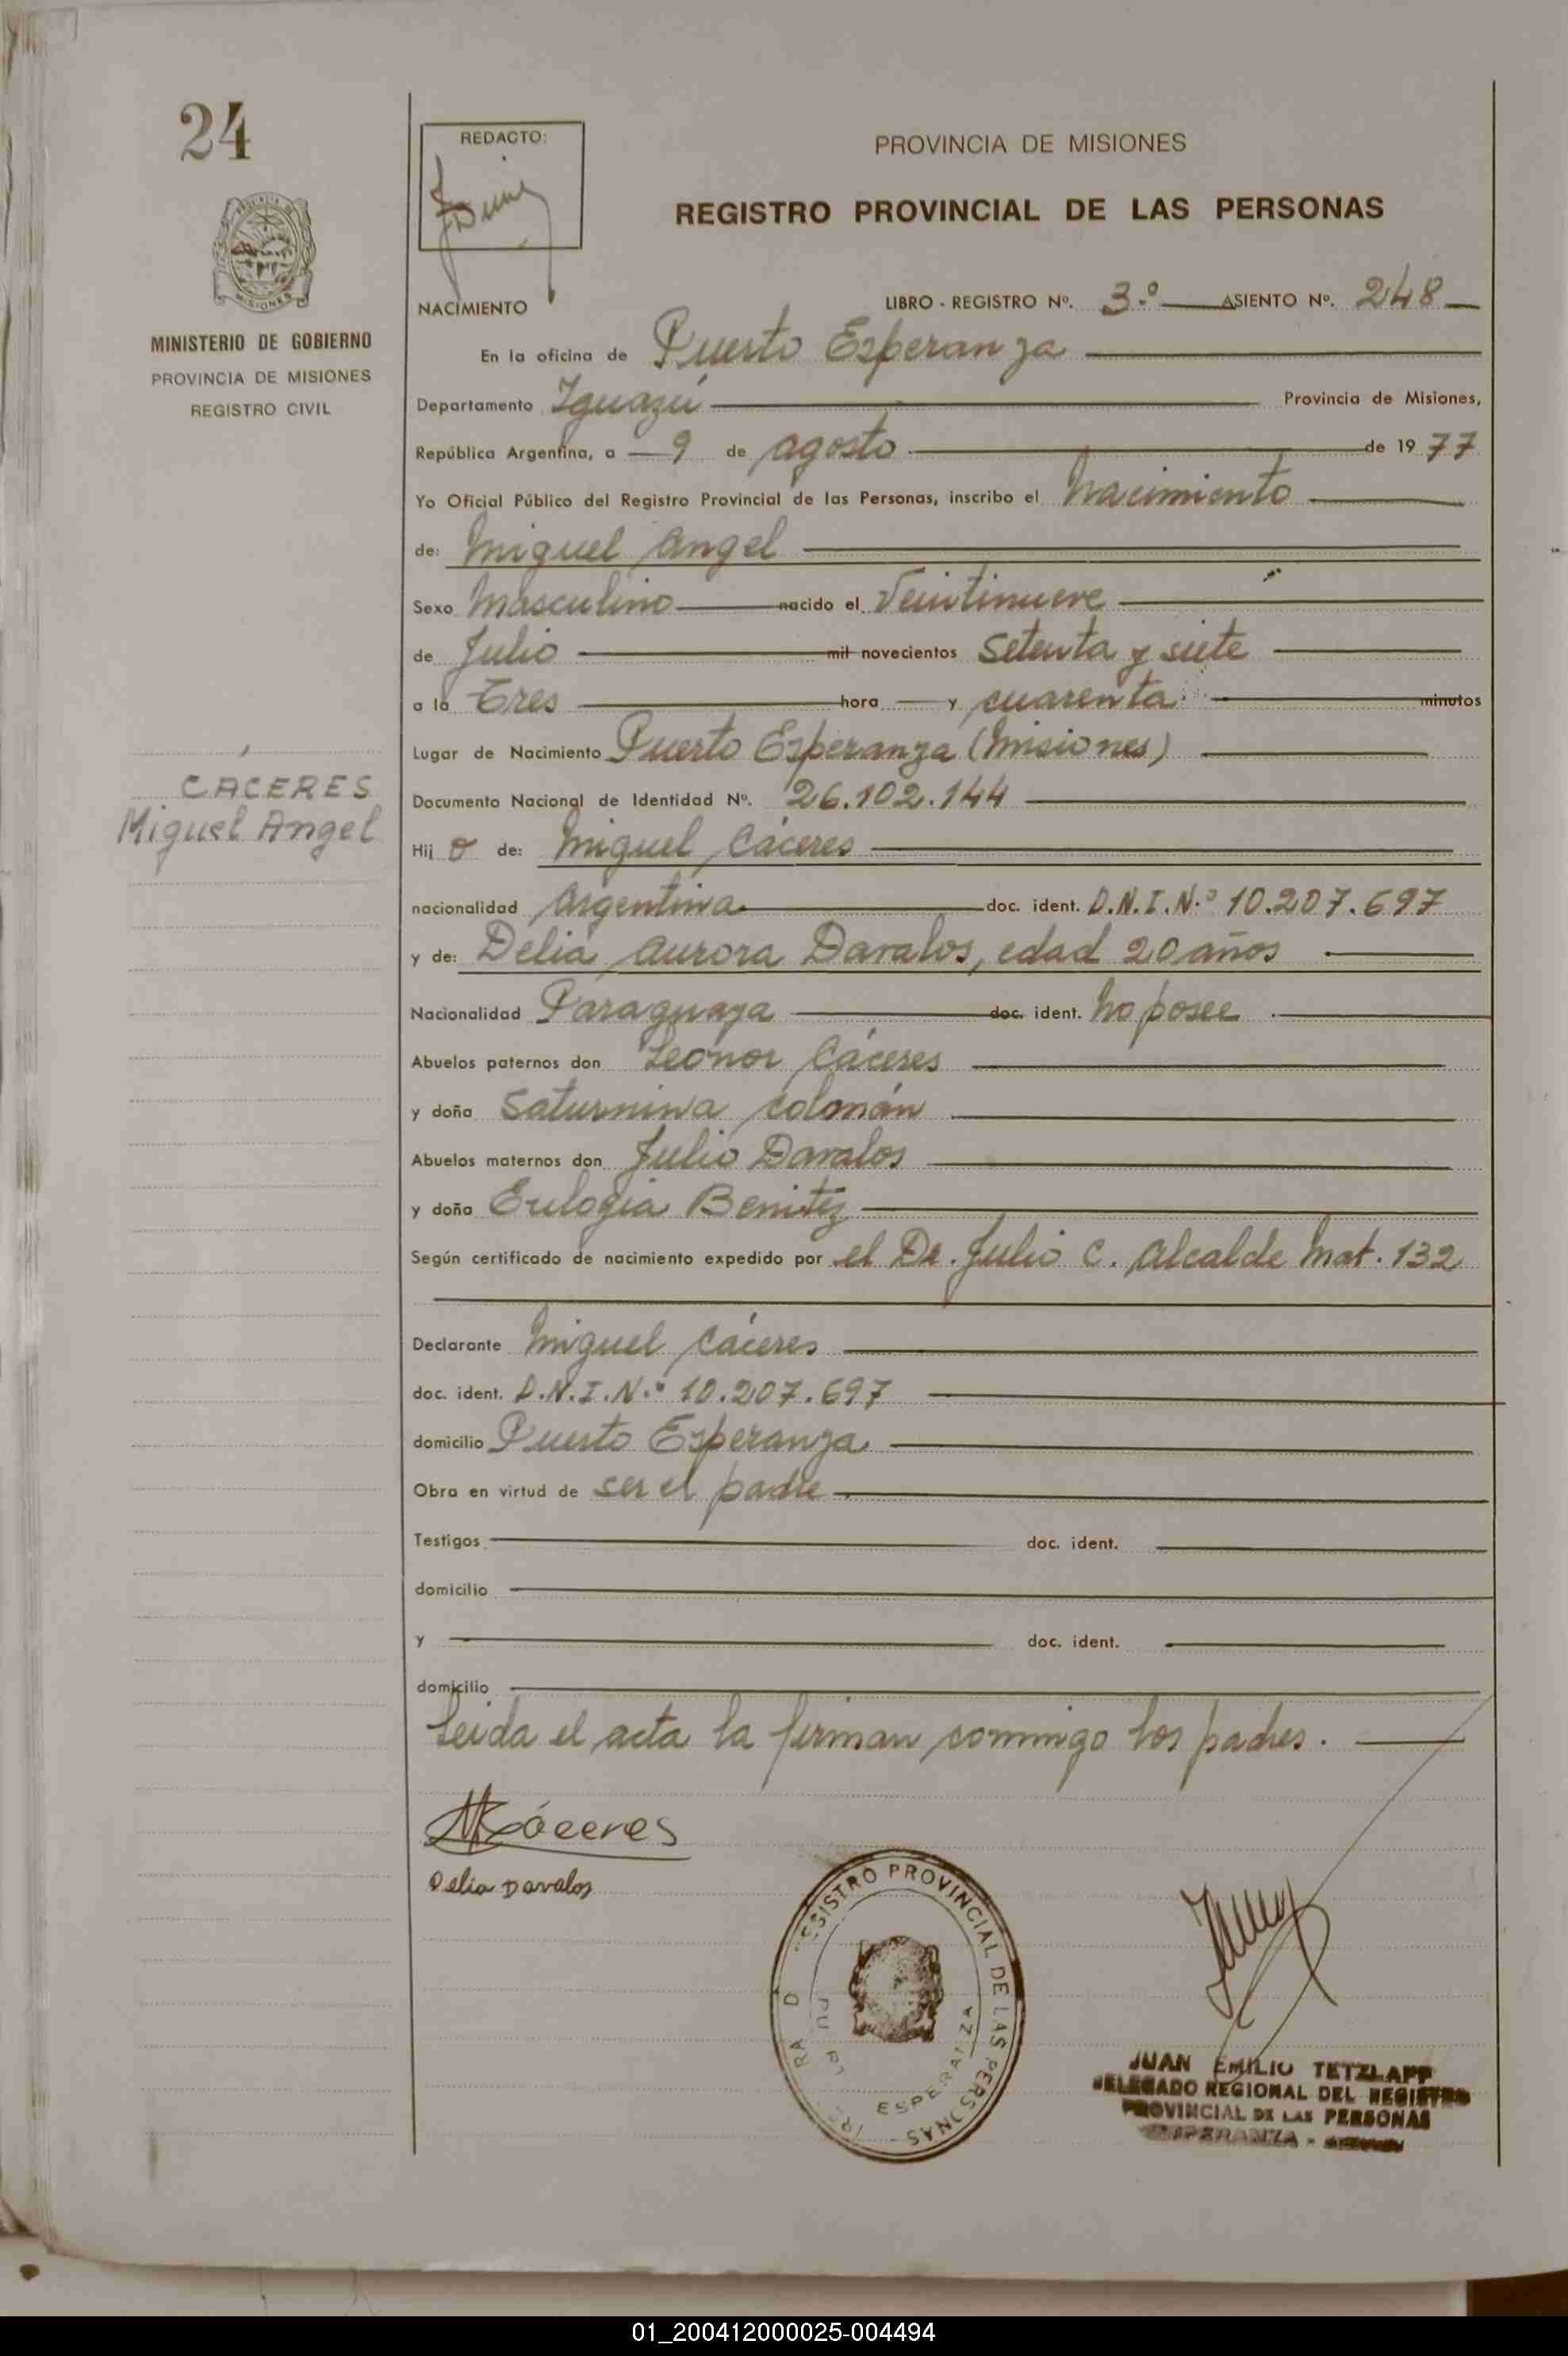 24
MINISTERIO DE GOBIERNO
PROVINCIA DE MISIONES
REGISTRO CIVIL
CÁCERES
Miguel Angel
REDACTO:
PROVINCIA DE MISIONES
REGISTRO PROVINCIAL DE LAS PERSONAS
NACIMIENTO LIBRO - REGISTRO Nº. 3.º ASIENTO Nº. 248
En la oficina de Puerto Esperanza
Departamento Iguazú Provincia de Misiones,
República Argentina, a 9 de agosto de 1977
Yo Oficial Público del Registro Provincial de las Personas, inscribo el nacimiento
de: Miguel Angel
Sexo Masculino nacido el Veintinueve
de Julio mil novecientos Setenta y siete
a la Tres hora y cuarenta minutos
Lugar de Nacimiento Puerto Esperanza (Misiones)
Documento Nacional de Identidad Nº. 26.102.144
Hij o de: Miguel Cáceres
nacionalidad Argentina doc. ident. D.N.I.N.º 10.207.697
y de: Delia Aurora Davalos, edad 20 años
Nacionalidad Paraguaya doc. ident. no posee
Abuelos paternos don Leonor Cáceres
y doña Saturnina Colmán
Abuelos maternos don Julio Davalos
y doña Eulogia Benitez
Según certificado de nacimiento expedido por el Dr. Julio C. Alcalde Mat. 132
Declarante Miguel Cáceres
doc. ident. D.N.I.N.º 10.207.697
domicilio Puerto Esperanza
Obra en virtud de ser el padre
Testigos doc. ident.
domicilio
y doc. ident.
domicilio
Leida el acta la firman conmigo los padres.
MCáceres
Delia Davalos
REGISTRO PROVINCIAL DE LAS PERSONAS
ESPERANZA
JUAN EMILIO TETZLAFF
DELEGADO REGIONAL DEL REGISTRO
PROVINCIAL DE LAS PERSONAS
ESPERANZA -
01_200412000025-004494